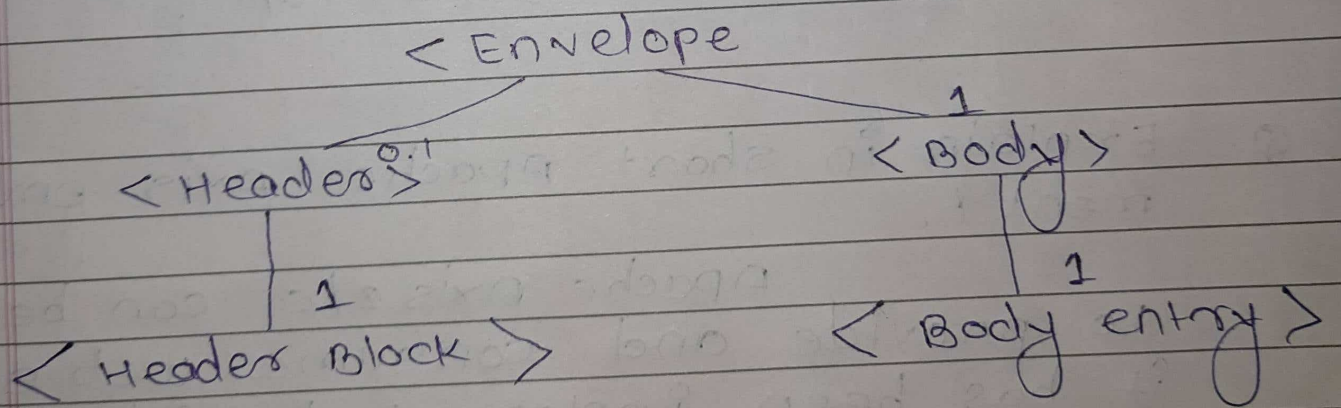 < Envelope
1
0.1
< Header> < Body>
1 1
< Header Block > < Body entry >